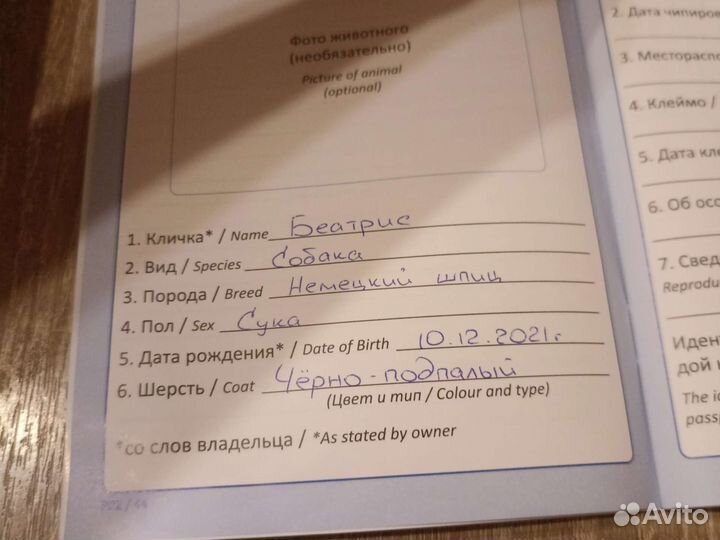 Фото животного
(необязательно)
Picture of animal
(optional)
1. Кличка* / Name Беатрис
2. Вид / Species Собака
3. Порода / Breed Немецкий шпиц
4. Пол / Sex Сука
5. Дата рождения* / Date of Birth 10.12.2021г
6. Шерсть / Coat Чёрно-подпалый
(Цвет и тип / Colour and type)
*со слов владельца / *As stated by owner
2. Дата
3.
4. Клеймо /
5. Дата
6. Об
7.
дой
The
Avito